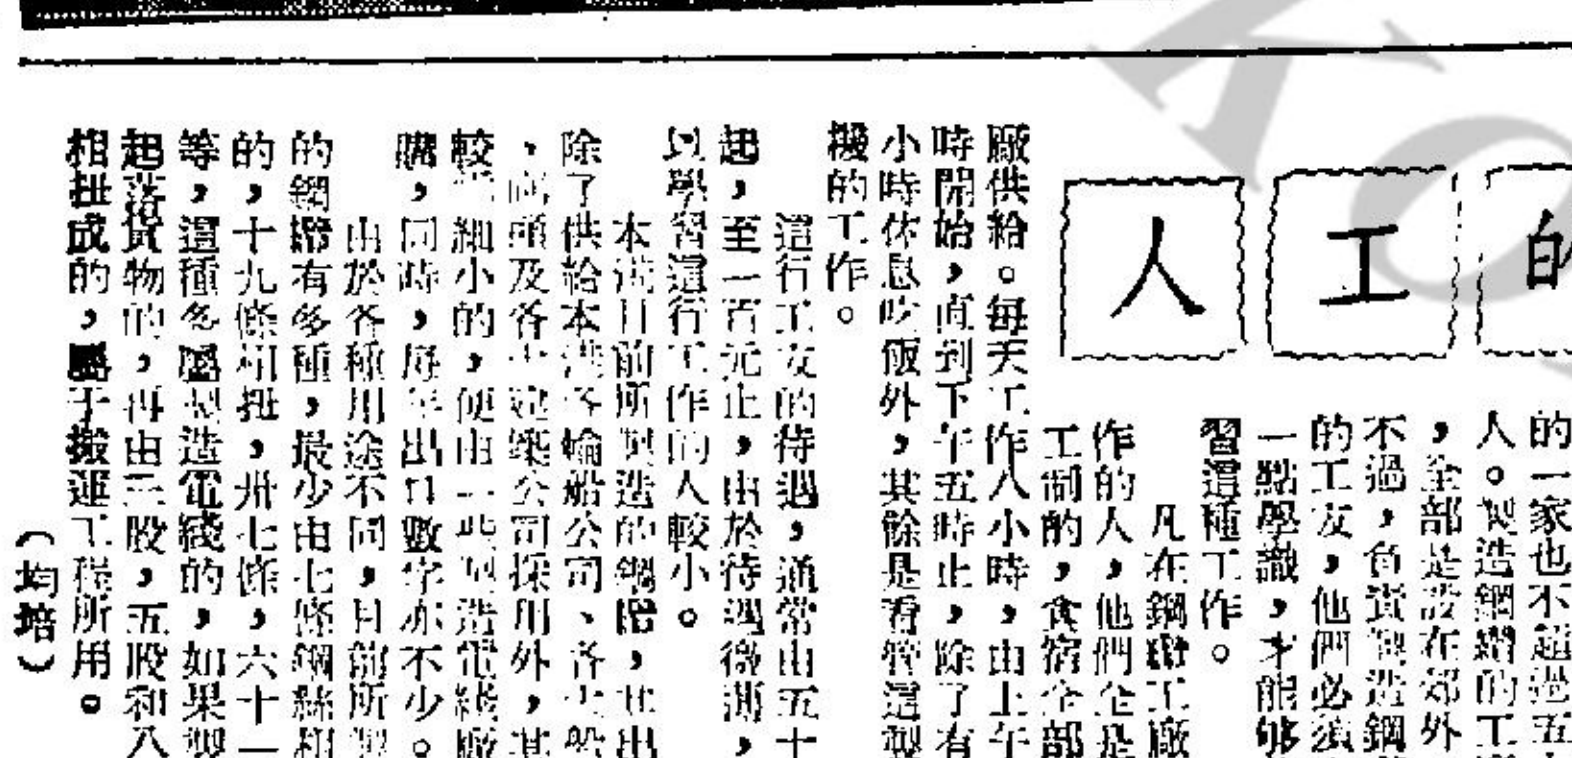 的工人
的一家也不超過五
人。製造鋼纜的工
,全部是設在郊外
不過,負責製造鋼
的工友,他們必須
一點學識,才能够
習這種工作。
凡在鋼纜工廠
作的人,他們全是
工制的,食宿全部
廠供給。每天工作八小時,由上午
時開始,直到下午五時止,除了有
小時休息吃飯外,其餘是看管這製
機的工作。
這行工友的待遇,通常由五十
起,至一百元止,由於待遇微薄,
以學習這行工作的人較小。
本港目前所製造的鋼纜,其出
除了供給本港各輪船公司、各大般
、碼頭及各大建築公司採用外,其
較細小的,便由一些製造電綫廠
購,同時,每年出口數字亦不少。
由於各種用途不同,目前所製
的鋼纜有多種,最少由七條鋼絲相
的,十九條相扭,卅七條,六十一
等,這種多屬製造電綫的,如果製
起落貨物的,再由三股,五股和八
相扭成的,屬于搬運工程所用。
(均培)